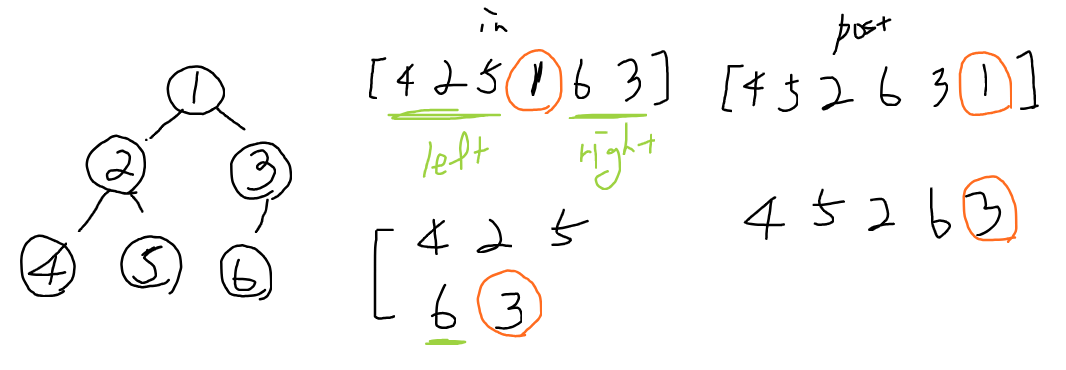 1
2 3
4 5 6
in
[4 2 5 1 6 3]
left right
[4 2 5
6 3
post
[4 5 2 6 3 1]
4 5 2 6 3